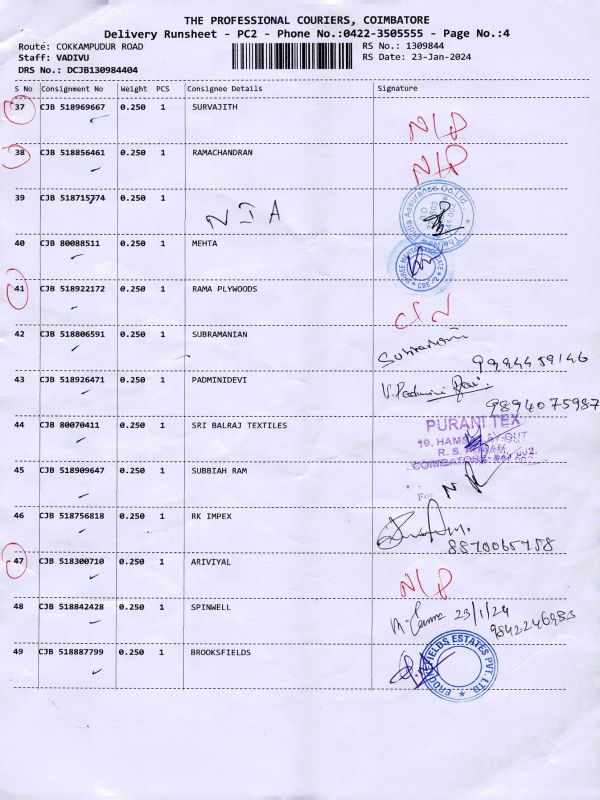 THE PROFESSIONAL COURIERS, COIMBATORE
Delivery Runsheet - PC2 - Phone No.:0422-3505555 - Page No.:4
Route: COKKAMPUDUR ROAD RS No.: 1309844
Staff: VADIVU RS Date: 23-Jan-2024
DRS No.: DCJB130984404
S No Consignment No Weight PCS Consignee Details Signature
37 CJB 518969667 0.250 1 SURVAJITH N/P
38 CJB 518856461 0.250 1 RAMACHANDRAN N/P
39 CJB 518715774 0.250 1 NIA
40 CJB 80088511 0.250 1 MEHTA
41 CJB 518922172 0.250 1 RAMA PLYWOODS
42 CJB 518806591 0.250 1 SUBRAMANIAN Subramani
9994459146
43 CJB 518926471 0.250 1 PADMINIDEVI V. Padmini Devi.
9894075987
44 CJB 80070411 0.250 1 SRI BALRAJ TEXTILES PURANI TEX
45 CJB 518909647 0.250 1 SUBBIAH RAM
For
46 CJB 518756818 0.250 1 RK IMPEX
8870065758
47 CJB 518300710 0.250 1 ARIVIYAL N/P
48 CJB 518842428 0.250 1 SPINWELL 23/1/24
49 CJB 518887799 0.250 1 BROOKSFIELDS
BROOKEFIELDS ESTATES PVT. LTD.